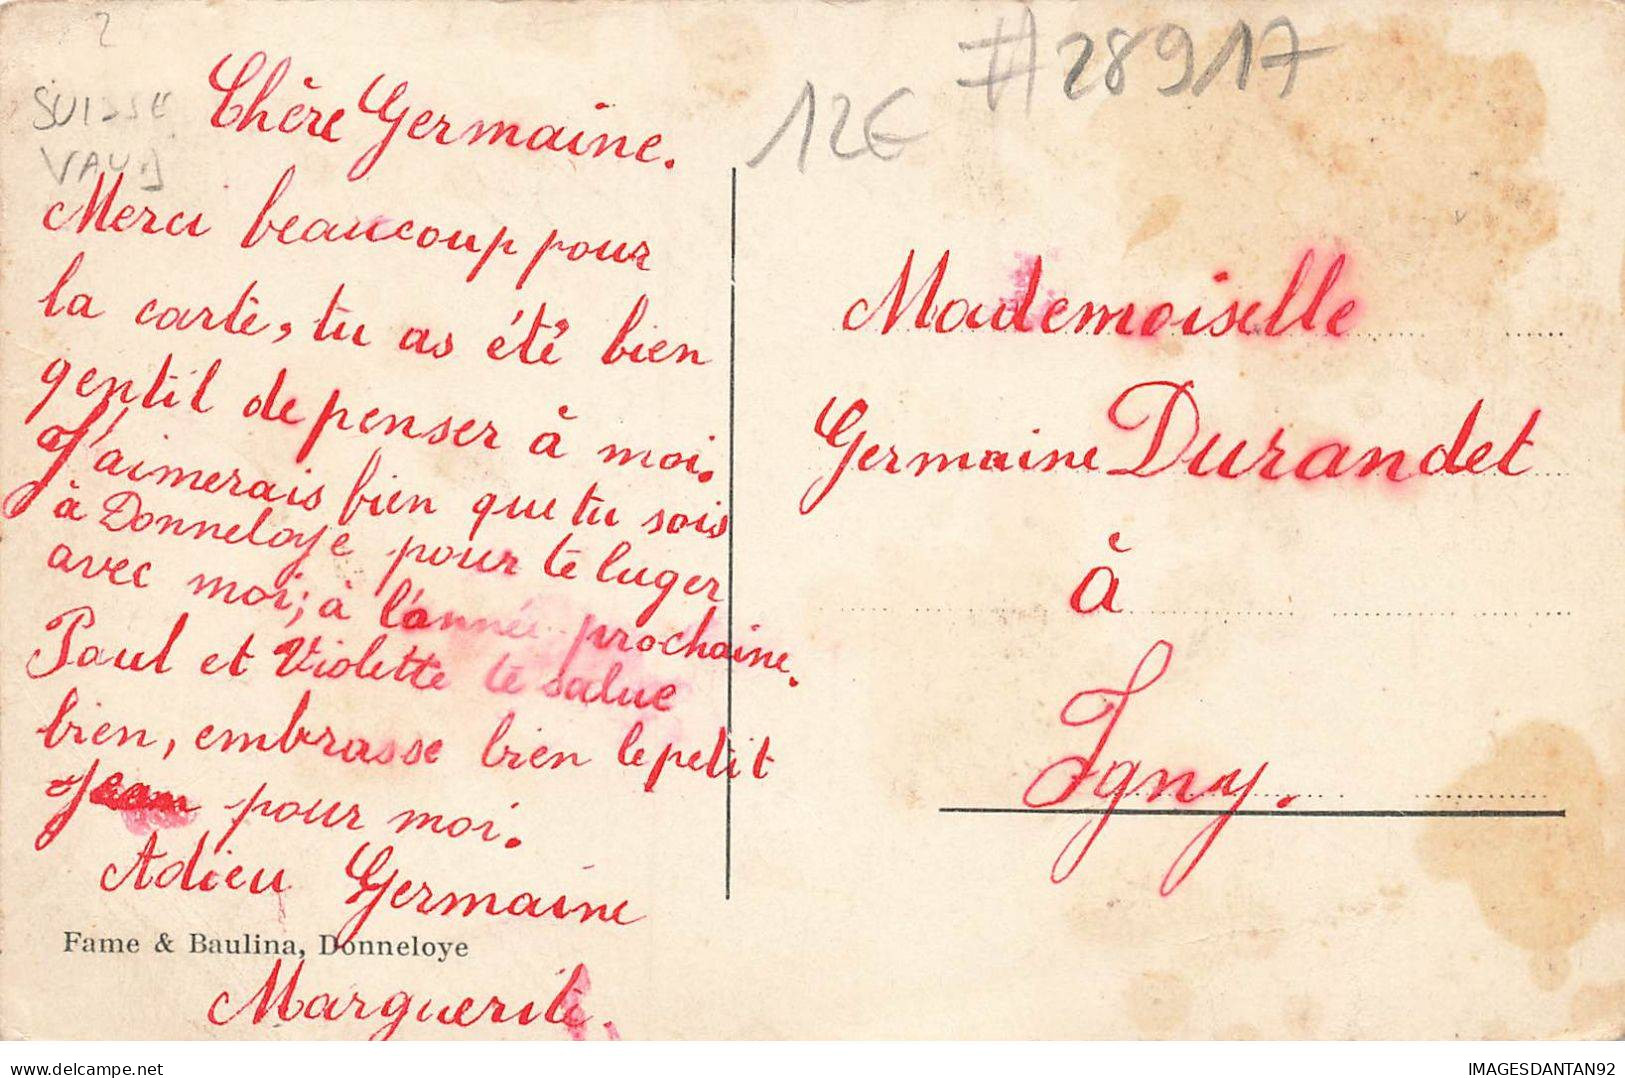 #28917
12€
SUISSE
VAUD
Chère Germaine.
Merci beaucoup pour
la carte, tu as été bien
gentil de penser à moi.
J'aimerais bien que tu sois
à Donneloye pour te luger
avec moi; à l'année prochaine.
Paul et Violette te salue
bien, embrasse bien le petit
Jean pour moi.
Adieu Germaine
Fame & Baulina, Donneloye
Marguerite.
Mademoiselle
Germaine Durandet
à
Igny.
IMAGESDANTAN92